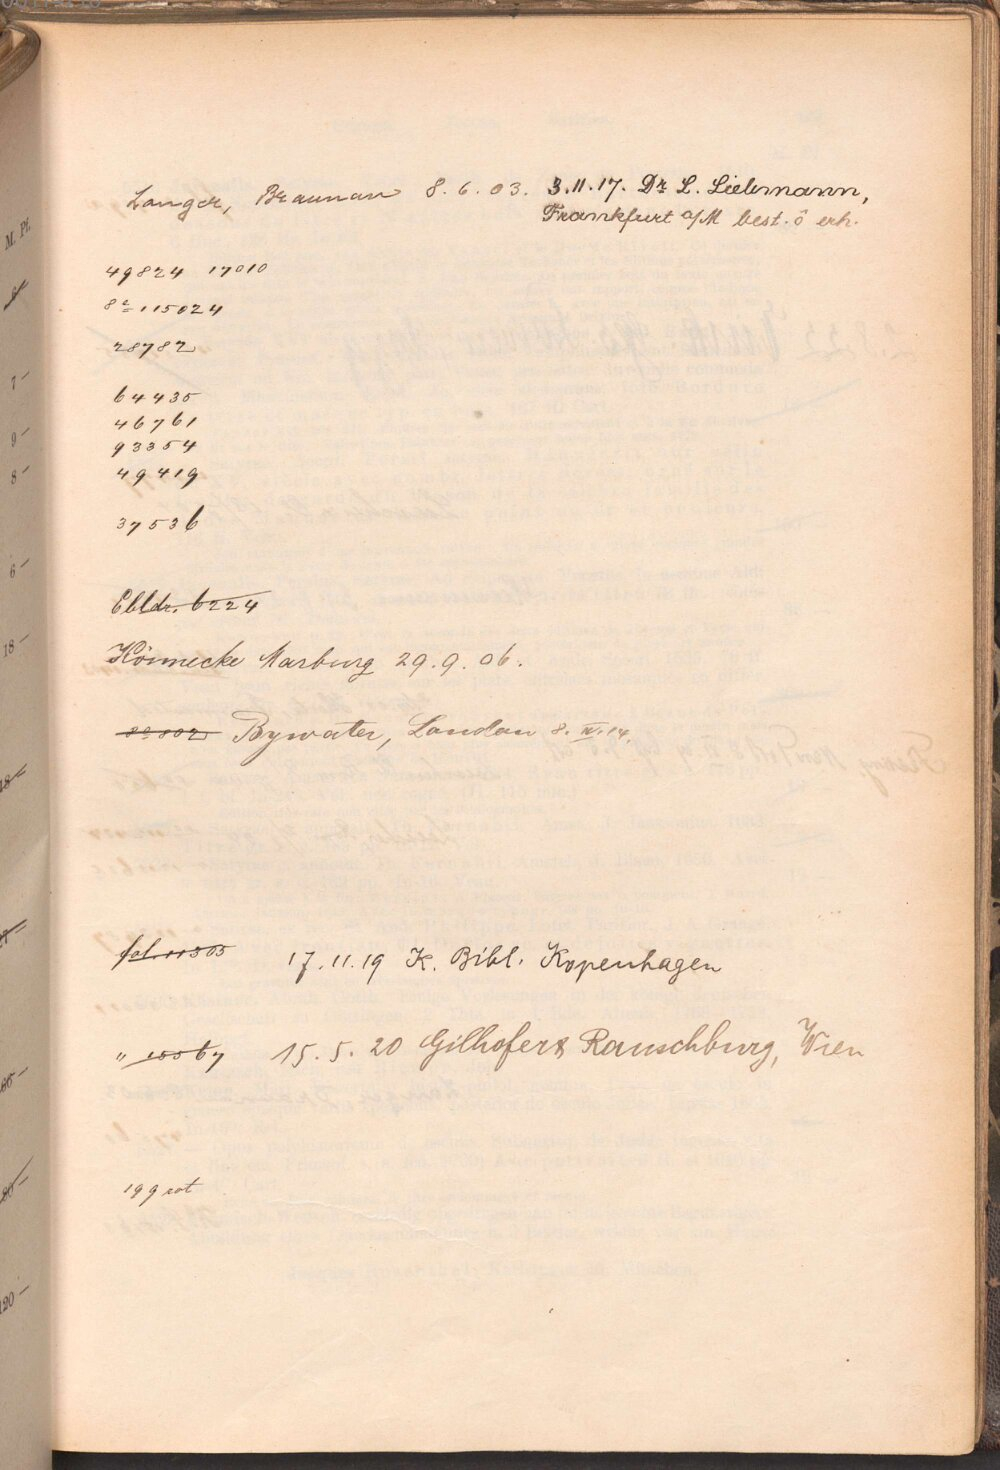 Langer, Braunau 8.6.03. 3.11.17. Dr L. Liebmann,
Frankfurt a/M best. ō erh.
49824 17010
8º 115024
28782
64435
46761
93354
49419
37536
Ebldr. 6224
Könnecke Marburg 29.9.06.
Bywater, London 8. IV. 14.
fol. 11303 17.11.19 K. Bibl. Kopenhagen
" 15567 15.5.20 Gilhofer & Rauschburg, Wien
199 rot
M. Pf.
7 —
9 —
8 —
6 —
18 —
120 —